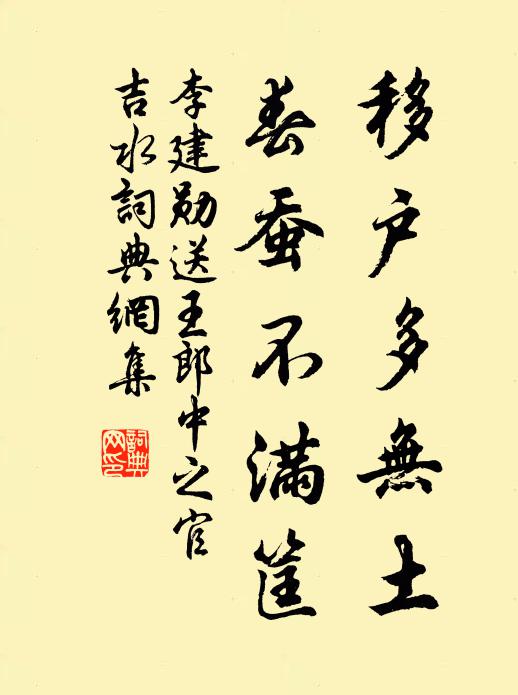 移户多無土
春蚕不满筐
李建勛送王郎中之官
吉水詞典網集
詞典网印